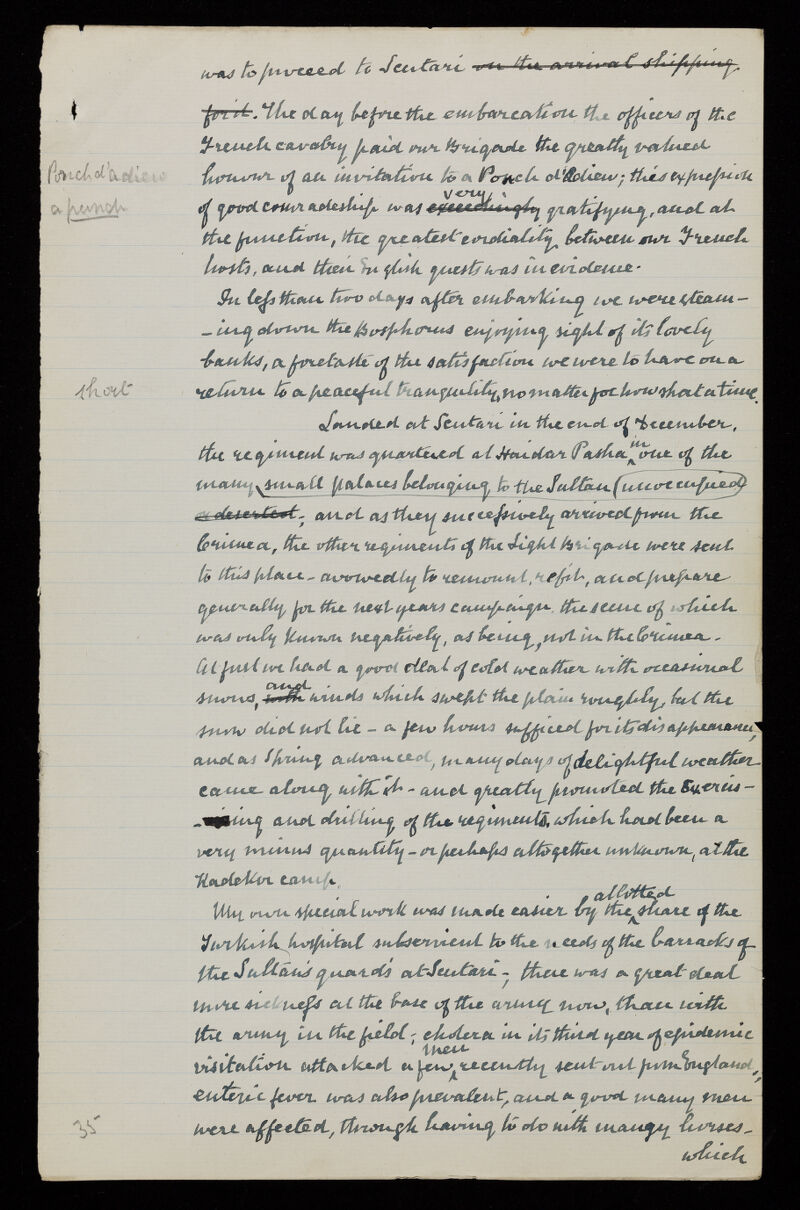 was to proceed to Scutari on the arrival shipping
for it. The day before the embarcation the officers of the
French cavalry paid our Brigade the greatly valued
Ponch d'adieu
honour of an invitation to a Ponch d'Adieu; this expression
a punch
very
of good comradeship was exceedingly gratifying, and at
the function, the greatest cordiality between our French
hosts, and their English guests was in evidence.
In less than two days after embarking we were steam-
-ing down the Bosphorus enjoying sight of its lovely
banks, a foretaste of the satisfaction we were to have on a
short
return to a peaceful tranquility, no matter for how short a time.
Landed at Scutari in the end of December,
in
the regiment was quartered at Haidar Pasha one of the
many small palaces belonging to the Sultan (unoccupied)
or deserted; and as they successively arrived from the
Crimea, the other regiments of the Light Brigade were sent
to this place - avowedly to remount, refit, and prepare
generally for the next years campaign, the scene of which
was only known negatively, as being, not in the Crimea.
At first we had a good deal of cold weather with occasional
and
snows, with winds which swept the plain roughly, but the
snow did not lie - a few hours sufficed for its disappearance,
and as Spring advanced, many days of delightful weather
came along with it - and greatly promoted the Exercis-
-ing and drilling of the regiments, which had been a
very minus quantity - or perhaps altogether unknown, at the
Kadekoi camp.
allotted
My own special work was made easier by the share of the
Turkish hospital subservient to the needs of the barracks of
the Sultan's guards at Scutari -; there was a great deal
more sickness at the base of the army now, than with
the army in the field; cholera in its third year of epidemic
men
visitation attacked a few recently sent out from England,
enteric fever was also prevalent, and a good many men
35
were affected, through having to do with mangy horses-
which